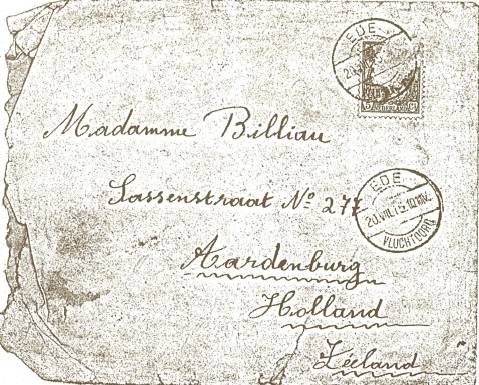 EDE
5 NEDERLAND Ct
Madamme Billiau
Sassenstraat Nº 277
EDE
20.VIII.15.10.11V.
VLUCHTOORD
Aardenburg
Holland
Zeeland